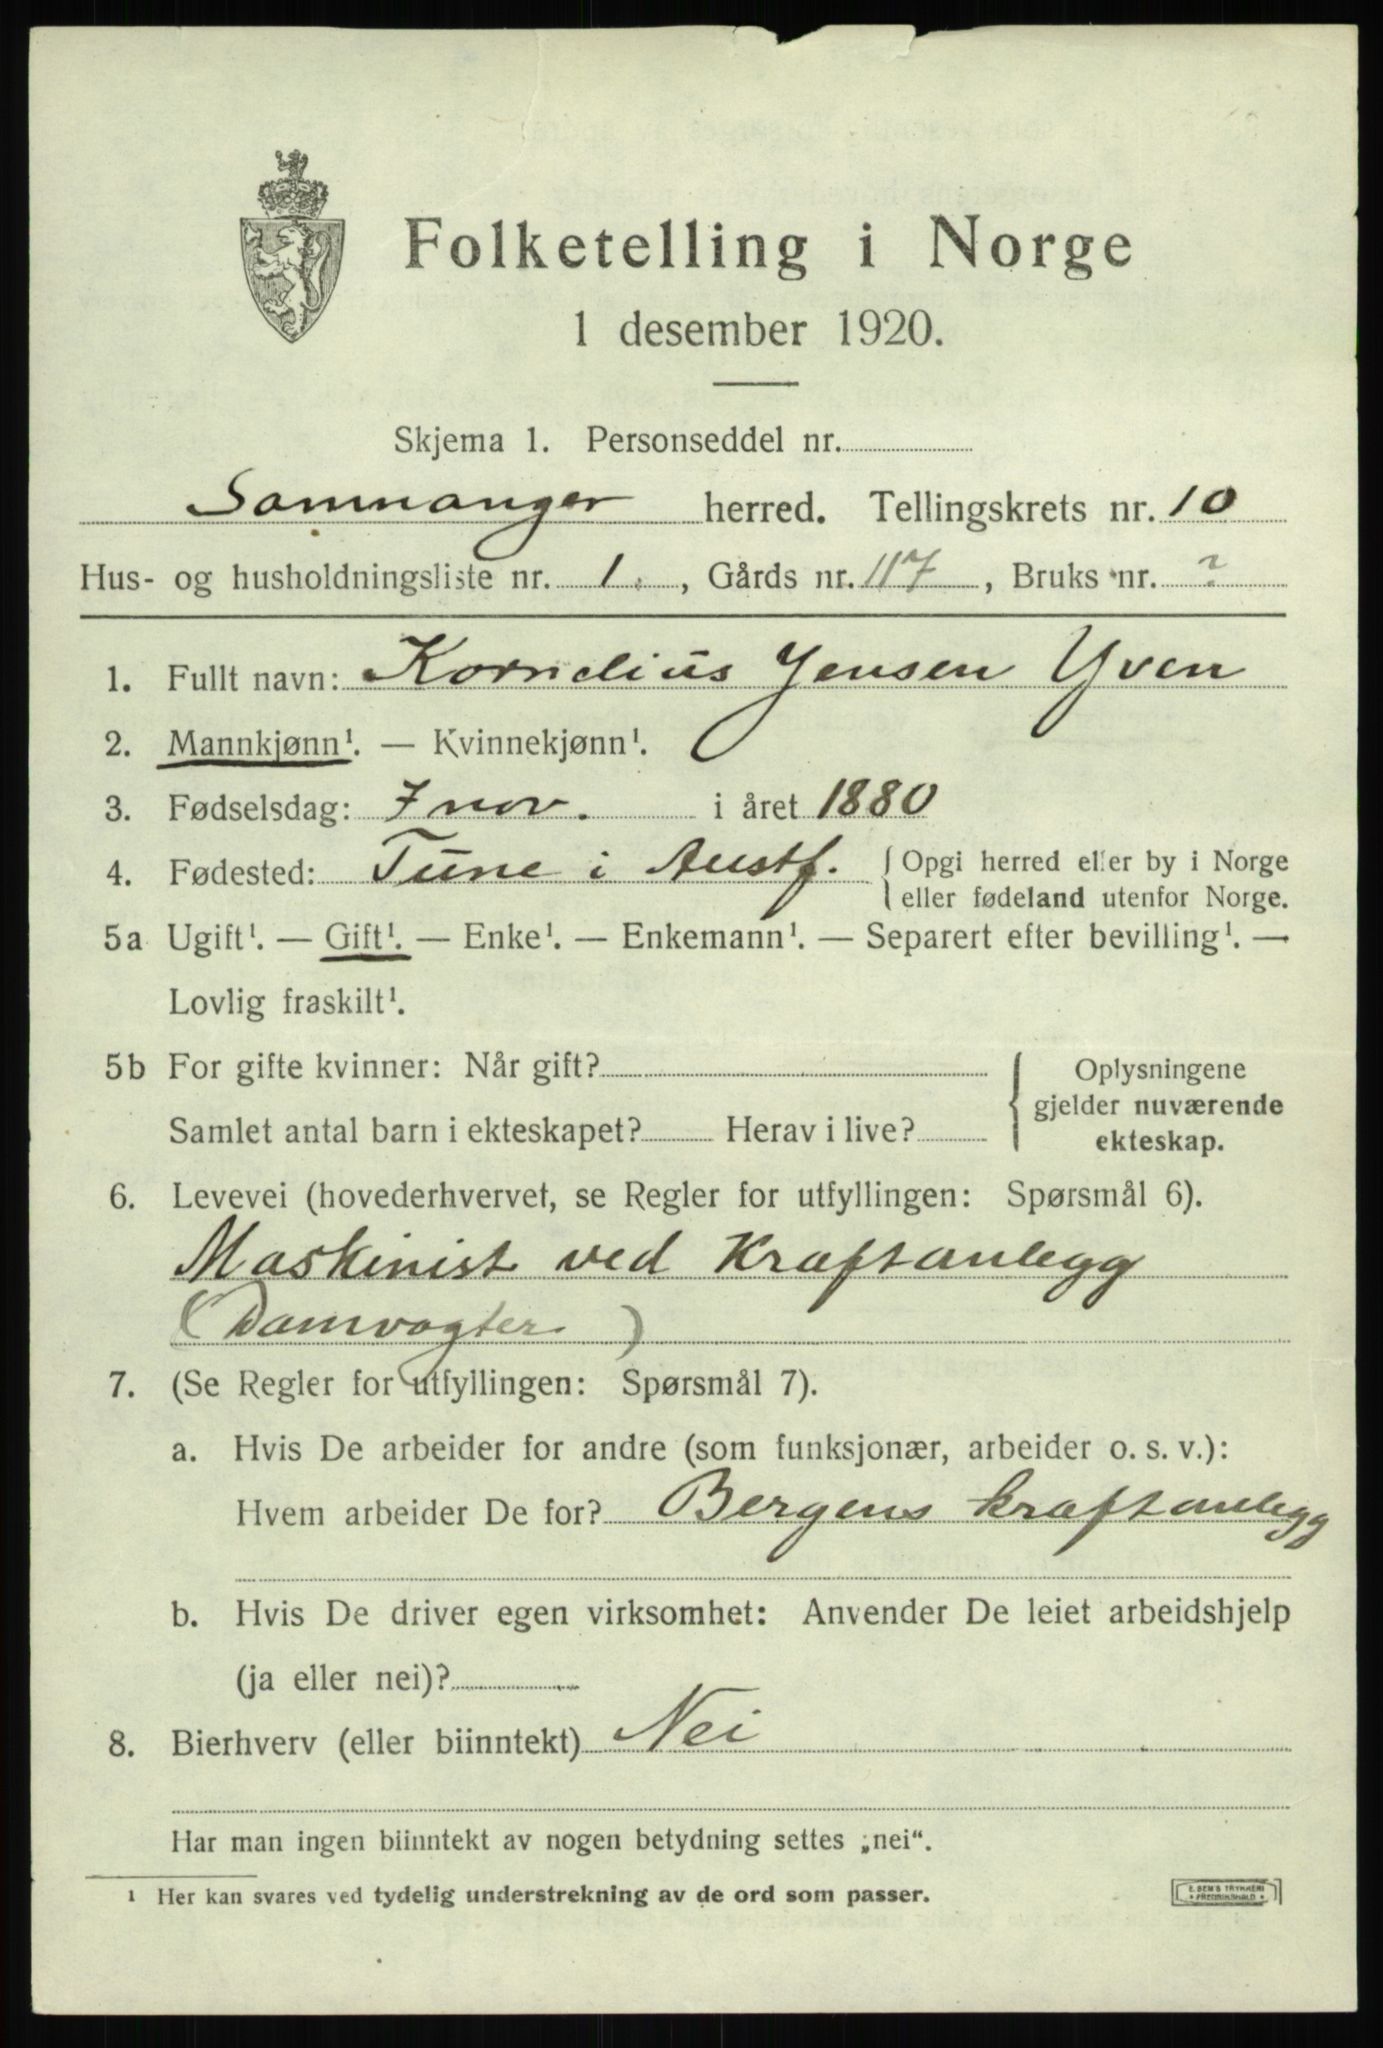 Folketelling i Norge
1 desember 1920.
Skjema 1. Personseddel nr.
Samnanger herred. Tellingskrets nr. 10
Hus- og husholdningsliste nr. 1. , Gårds nr. 117 , Bruks nr. ?
1. Fullt navn: Kornelius Jensen Yven
2. Mannkjønn¹. — Kvinnekjønn¹.
3. Fødselsdag: 7 nov. i året 1880
4. Fødested: Tune i Austf. { Opgi herred eller by i Norge
eller fødeland utenfor Norge.
5a Ugift¹. — Gift¹. — Enke¹. — Enkemann¹. — Separert efter bevilling¹. —
Lovlig fraskilt¹.
5b For gifte kvinner: Når gift?
Samlet antal barn i ekteskapet? Herav i live?
Oplysningene
gjelder nuværende
ekteskap.
6. Levevei (hovederhvervet, se Regler for utfyllingen: Spørsmål 6).
Maskinist ved Kraftanlegg
(Damvogter)
7. (Se Regler for utfyllingen: Spørsmål 7).
a. Hvis De arbeider for andre (som funksjonær, arbeider o. s. v.):
Hvem arbeider De for? Bergens kraftanlegg
b. Hvis De driver egen virksomhet: Anvender De leiet arbeidshjelp
(ja eller nei)?
8. Bierhverv (eller biinntekt) Nei
Har man ingen biinntekt av nogen betydning settes „nei“.
¹ Her kan svares ved tydelig understrekning av de ord som passer.
E. SEM'S TRYKKERI
• FREDRIKSHALD •